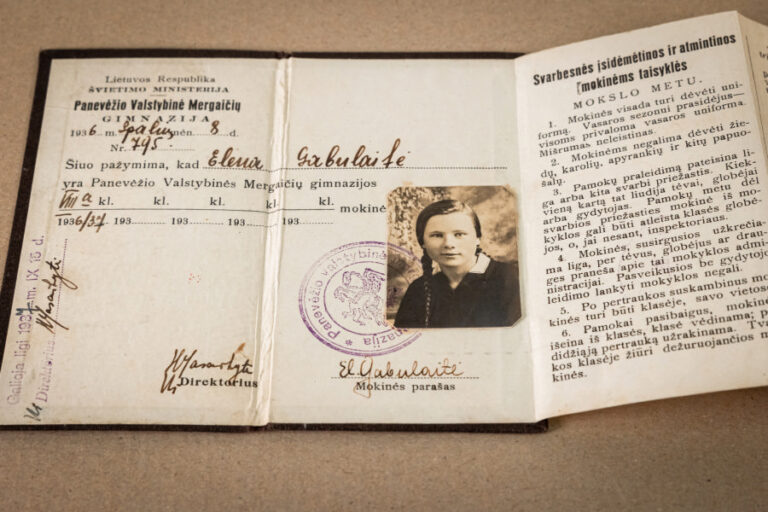 Lietuvos Respublika
ŠVIETIMO MINISTERIJA
Panevėžio Valstybinė Mergaičių
GIMNAZIJA
1936 m. Spalių mėn. 8 d.
Nr. 795.
Šiuo pažymima, kad Elena Gabulaitė
yra Panevėžio Valstybinės Mergaičių gimnazijos
VIII a kl. kl. kl. kl. kl. mokinė
1936/37 193 193 193 193
Galioja ligi 1937 m. IX 15 d.
Direktorius
Direktorius
Panevėžio Valstybinė gimnazija
El. Gabulaitė
Mokinės parašas
Svarbesnės įsidėmėtinos ir atmintinos
mokinėms taisyklės
MOKSLO METU.
1. Mokinės visada turi dėvėti uni-
formą. Vasaros sezonui prasidėjus—
visoms privaloma vasaros uniforma.
Mišrumas neleistinas.
2. Mokinėms negalima dėvėti žie-
dų, karolių, apyrankių ir kitų papuo-
šalų.
3. Pamokų praleidimą pateisina li-
ga arba kita svarbi priežastis. Kiek-
vieną kartą tai liudija tėvai, globėjai
arba gydytojas. Pamokų metu dėl
svarbios priežasties mokinė iš mo-
kyklos gali būti atleista klasės globė-
jos, o, jai nesant, inspektoriaus.
4. Mokinės, susirgusios užkrečia-
ma liga, per tėvus, globėjus ar drau-
ges praneša apie tai mokyklos admi-
nistracijai. Pasveikusios be gydytojo
leidimo lankyti mokyklos negali.
5. Po pertraukos suskambinus mo-
kinės turi būti klasėje, savo vietose
6. Pamokai pasibaigus, mokinės
išeina iš klasės, klasė vėdinama; p
didžiąją pertrauką užrakinama. Tva
kos klasėje žiūri dežuruojančios mo
kinės.